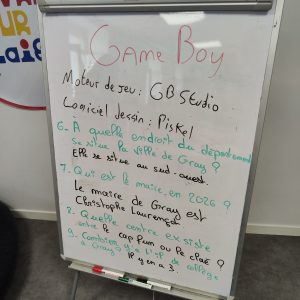 GAME BOY
Moteur de jeu : GBStudio
Logiciel dessin : Piskel
6. A quelle endroit du département
se situe la ville de Gray ?
Elle se situe au sud-ouest.
7. Qui est le maire en 2026 ?
Le maire de Gray est
Christophe Laurençot
8. Quelle centre existe
entre le cap fun ou le clae ?
9. Combien y'a t'il de collège
à Gray ? Il y en a 3